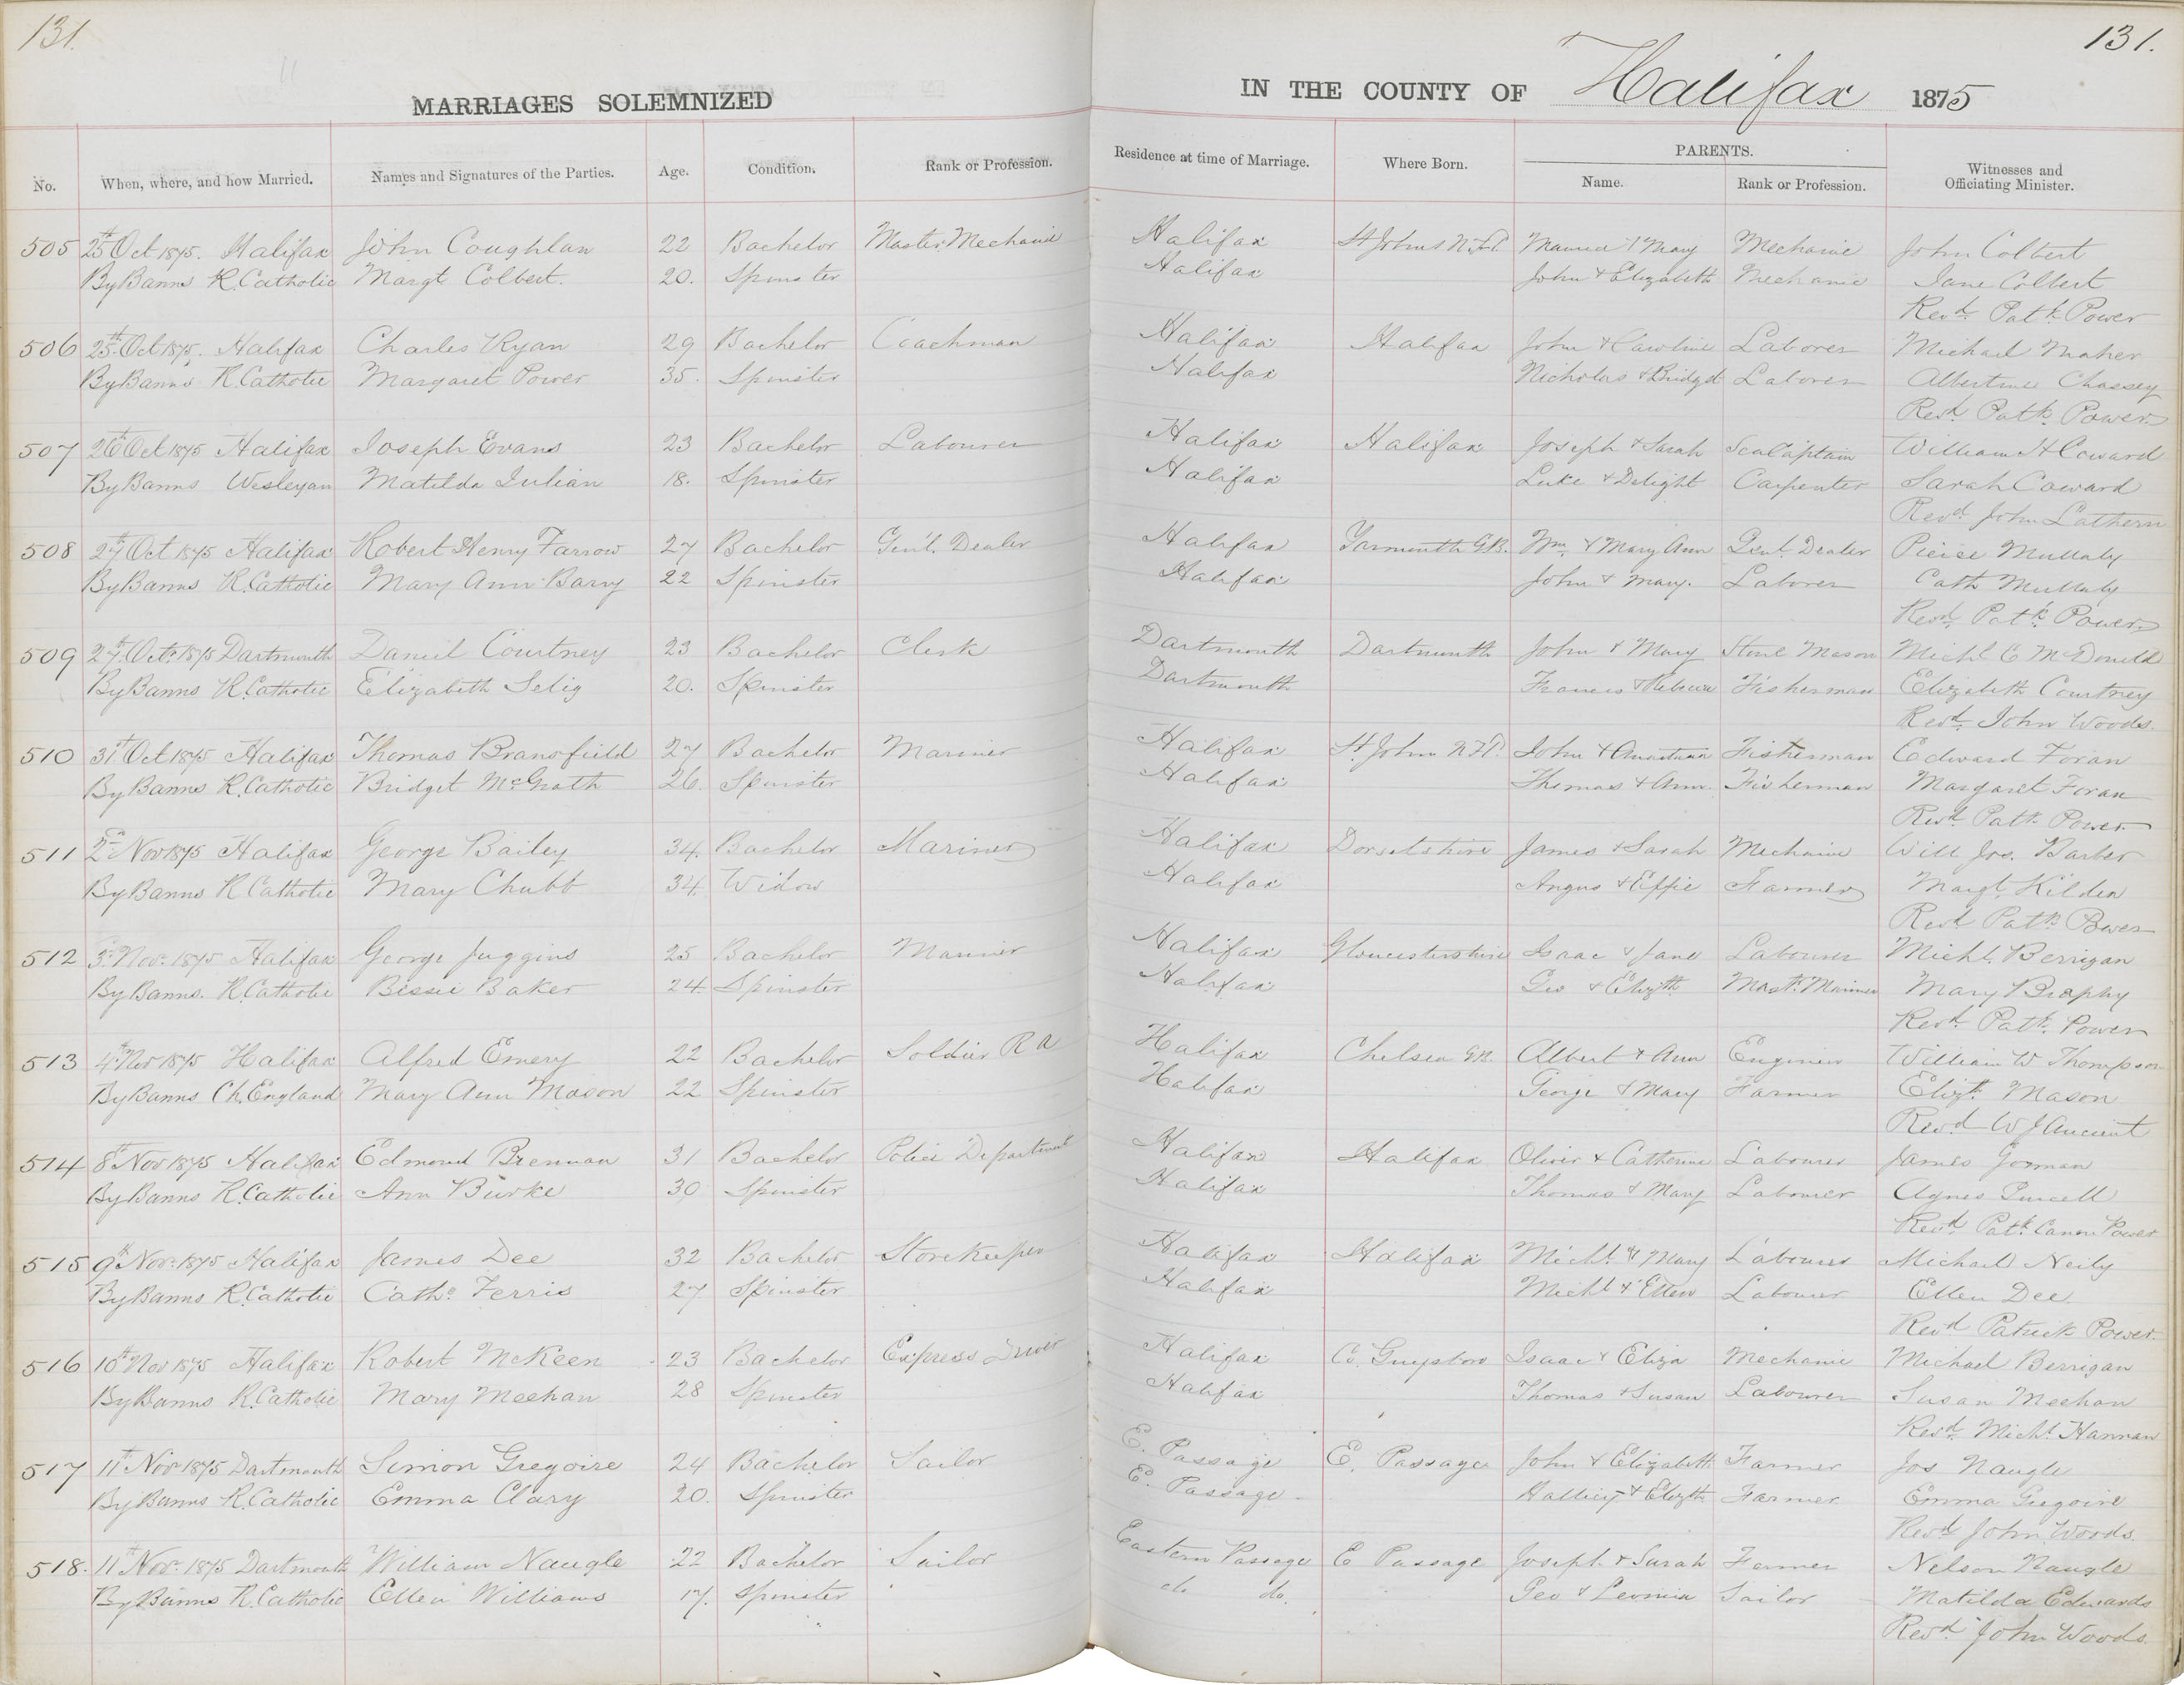 131.
131.
MARRIAGES SOLEMNIZED IN THE COUNTY OF Halifax 1875
No. When, where, and how Married. Names and Signatures of the Parties. Age. Condition. Rank or Profession. Residence at time of Marriage. Where Born. PARENTS. Name. Rank or Profession. Witnesses and Officiating Minister.
505 25th Oct 1875. Halifax John Coughlan 22 Bachelor Master Mechanic Halifax St Johns N.F.L. Maurice & Mary Mechanic John Colbert
By Banns R. Catholic Margt Colbert. 20. Spinster Halifax John & Elizabeth Mechanic Jane Colbert
Revd. Patk. Power
506 25th Oct 1875. Halifax Charles Ryan 29 Bachelor Coachman Halifax Halifax John & Caroline Laborer Michael Maher
By Banns R. Catholic Margaret Power 35. Spinster Halifax Nicholas & Bridget Laborer Albertine Chassey
Revd. Patk. Power
507 26th Oct 1875 Halifax Joseph Evans 23 Bachelor Labourer Halifax Halifax Joseph & Sarah Sea Captain William H Coward
By Banns Wesleyan Matilda Julian 18. Spinster Halifax Luke & Delight Carpenter Sarah Coward
Revd. John Lathern
508 27th Oct 1875 Halifax Robert Henry Farrow 27 Bachelor Gen'l. Dealer Halifax Yarmouth G.B. Wm. & Mary Ann Genl. Dealer Pierce Mullaly
By Banns R. Catholic Mary Ann Barry 22 Spinster Halifax John & Mary. Laborer Cath Mullaly
Revd. Patk. Power
509 27th Octr. 1875 Dartmouth Daniel Courtney 23 Bachelor Clerk Dartmouth Dartmouth John & Mary Stone Mason Michl C McDonald
By Banns R. Catholic Elizabeth Selig 20. Spinster Dartmouth Francis & Rebecca Fisherman Elizabeth Courtney
Revd. John Woods.
510 31st Oct 1875 Halifax Thomas Bransfield 27 Bachelor Mariner Halifax St. Johns N.F.L. John & Anastasia Fisherman Edward Foran
By Banns R. Catholic Bridget McGrath 26. Spinster Halifax Thomas & Ann. Fisherman Margaret Foran
Revd. Patk. Power
511 2nd Nov 1875 Halifax George Bailey 34. Bachelor Mariner Halifax Dorsetshire James & Sarah Mechanic Will Jos. Barber
By Banns R Catholic Mary Chubb 34 Widow Halifax Angus & Effie Farmer Margt Kilden
Revd Patk Power
512 3rd Nov. 1875 Halifax George Juggins 25 Bachelor Mariner Halifax Gloucestershire Isaac & Jane Labourer Michl. Berrigan
By Banns. R. Catholic Bessie Baker 24 Spinster Halifax Geo & Elizth. Mastr. Mariner Mary Brophy
Revd. Patk. Power
513 4th Nov 1875 Halifax Alfred Emery 22 Bachelor Soldier R A Halifax Chelsea En. Albert & Ann Engineer William W Thompson
By Banns Ch. England Mary Ann Mason 22 Spinster Halifax George & Mary Farmer Elizth. Mason
Revd W J Ancient
514 8th Nov 1875 Halifax Edmond Brennan 31 Bachelor Police Department Halifax Halifax Oliver & Catherine Labourer James Gorman
By Banns R. Catholic Ann Burke 30 Spinster Halifax Thomas & Mary Labourer Agnes Purcell
Revd. Patk. Canon Power
515 9th Nov. 1875 Halifax James Dee 32 Bachelor Storekeeper Halifax Halifax Michl. & Mary Labourer Michael Neily
By Banns R. Catholic Cath. Ferris 27 Spinster Halifax Michl & Ellen Labourer Ellen Dee
Revd Patrick Power
516 10th Nov 1875 Halifax Robert McKeen 23 Bachelor Express Driver Halifax Co. Guysboro Isaac & Eliza Mechanic Michael Berrigan
By Banns R. Catholic Mary Meehan 28 Spinster Halifax Thomas & Susan Labourer Susan Meehan
Revd. Michl. Hannan
517 11th Nov 1875 Dartmouth Simon Gregoire 24 Bachelor Sailor E. Passage E. Passage John & Elizabeth Farmer Jos Naugle
By Banns R. Catholic Emma Clary 20. Spinster E. Passage & Elizth Farmer Emma Gregoire
Revd John Woods.
518. 11th Nov. 1875 Dartmouth William Naugle 22 Bachelor Sailor Eastern Passage E Passage Joseph & Sarah Farmer Nelson Naugle
By Banns R. Catholic Ellen Williams 17. Spinster do do. Geo & Sailor Matilda Edwards
Revd. John Woods.